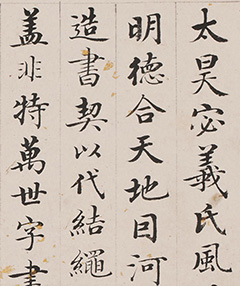 太昊宓羲氏風
明德合天地因河
造書契以代結繩
盖非特萬世字書